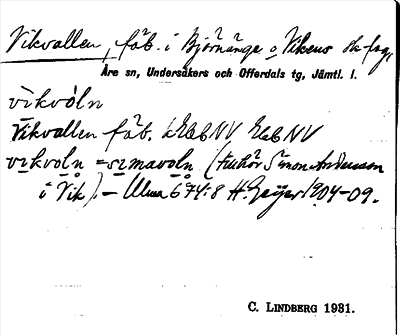 Vikvallen, fäb. i Björnänge o Vikens sk
Åre sn, Undersåkers och Offerdals tg, Jämtl. l.
vìkvóln
Vikvallen fäb. NV NV
vikvoln = simavoln (tillhör Simon Andersson
i Vik). – Ulma 674:8 H. Geijer 1904-09.
C. LINDBERG 1931.